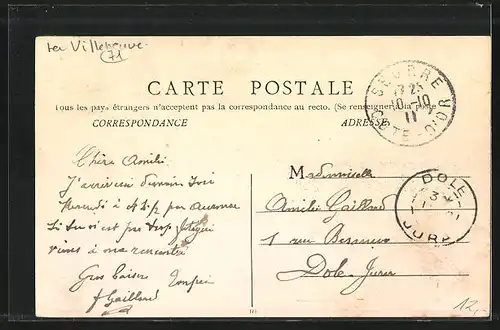 Villeneuve
71
CARTE POSTALE
Tous les pays étrangers n'acceptent pas la correspondance au recto. (Se renseigner à la poste
CORRESPONDANCE
ADRESSE
SEURRE
13 25
10 -10
11
COTE-D'OR
Chère Amélie
J'arriverai demain soir
Mercredi à
Si tu n'est pas trop fatiguée
viens à ma rencontre
Gros baisers
Gaillard
Mademoiselle
Amélie Gaillard
1 rue
Dole-Jura
DOLE
JURA
12,-